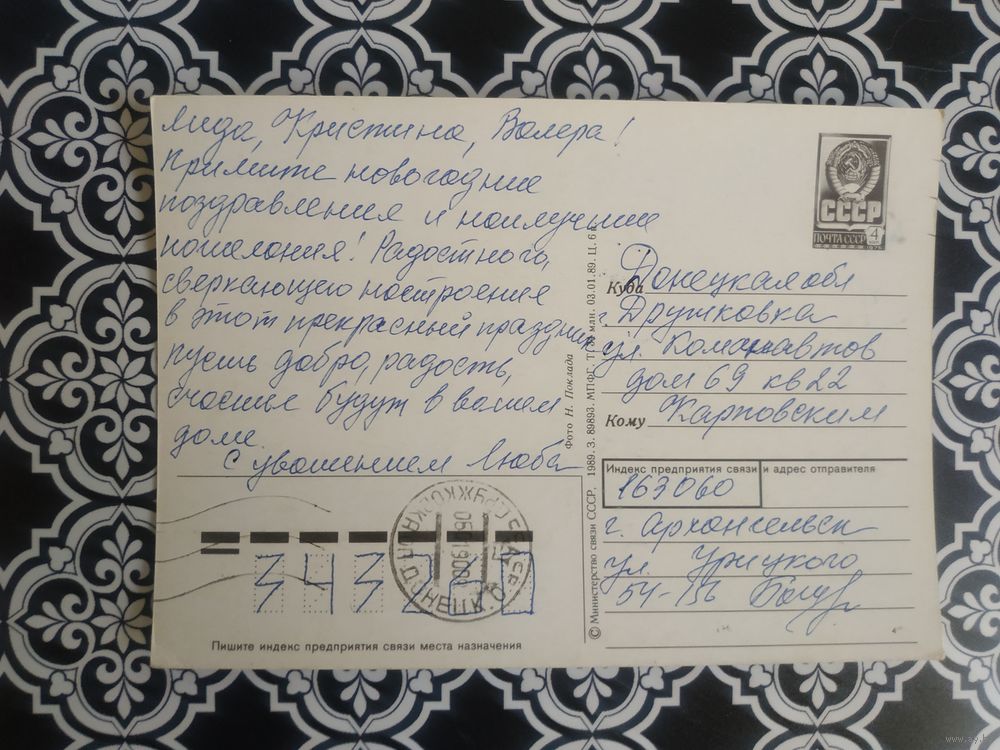 Лида, Кристина, Валера!
Примите новогодние
поздравления и наилучшие
пожелания! Радостного,
сверкающего настроения
в этот прекрасный праздник
пусть добро, радость,
счастье будут в вашем
доме.
С уважением Люба
СССР
ПОЧТА СССР 4
Куда Донецкая обл
г. Дружковка
ул. Космонавтов
дом 69 кв 22
Кому Карповским
Индекс предприятия связи и адрес отправителя
163060
г. Архангельск
ул. Урицкого
54-156
Фото Н. Поклада
© Министерство связи СССР, 1989. З. 89893. МПФГ. 03.01.89. Ц. 6 к.
Пишите индекс предприятия связи места назначения